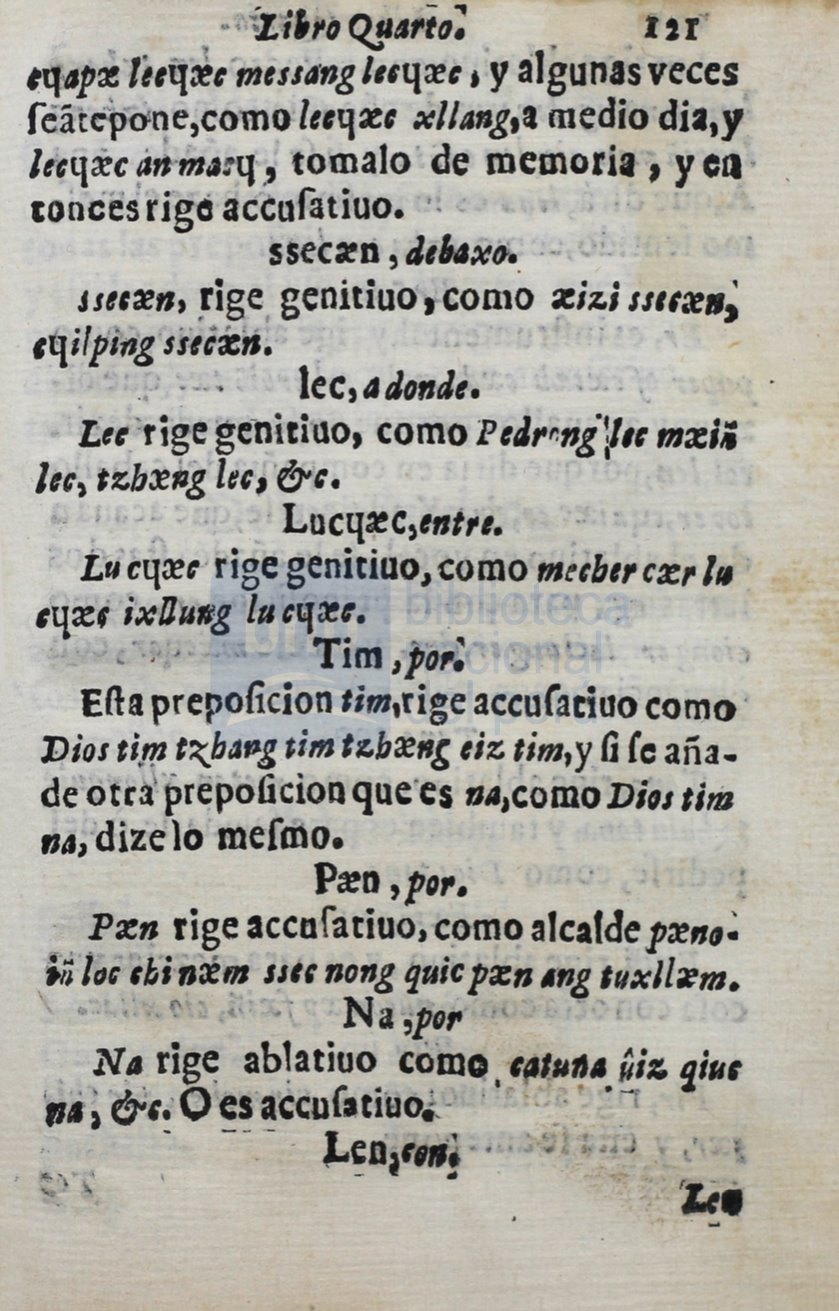 Libro Quarto. 121
cɥapæ leecɥæc messang leecɥæc, y algunas veces
ſeãtepone,como leecɥæc xllang,a medio dia,y
leecɥæc an macɥ, tomalo de memoria, y en
tonces rige accuſatiuo.
ssecæn, debaxo.
ssecæn, rige genitiuo, como æizi ssecæn,
cɥilping ssecæn.
lec, a donde.
Lec rige genitiuo, como Pedrong lec mæiñ
lec, tzhæng lec, &c.
Lucɥæc,entre.
Lu cɥæc rige genitiuo, como mecher cær lu
cɥæc ixllung lu cɥæc.
Tim,por.
Eſta prepoſicion tim,rige accuſatiuo como
Dios tim tzhang tim tzhæng eiz tim,y ſi ſe aña-
de otra prepoſicion que es na,como Dios tim
na, dize lo meſmo.
Pæn,por.
Pæn rige accuſatiuo, como alcalde pæno-
iñ loc chi næm ssec nong quic pæn ang tuxllæm.
Na,por
Na rige ablatiuo como catuna ûiz qiuc
na, &c. O es accuſatiuo.
Len,con.
Len
biblioteca
nacional
del perú